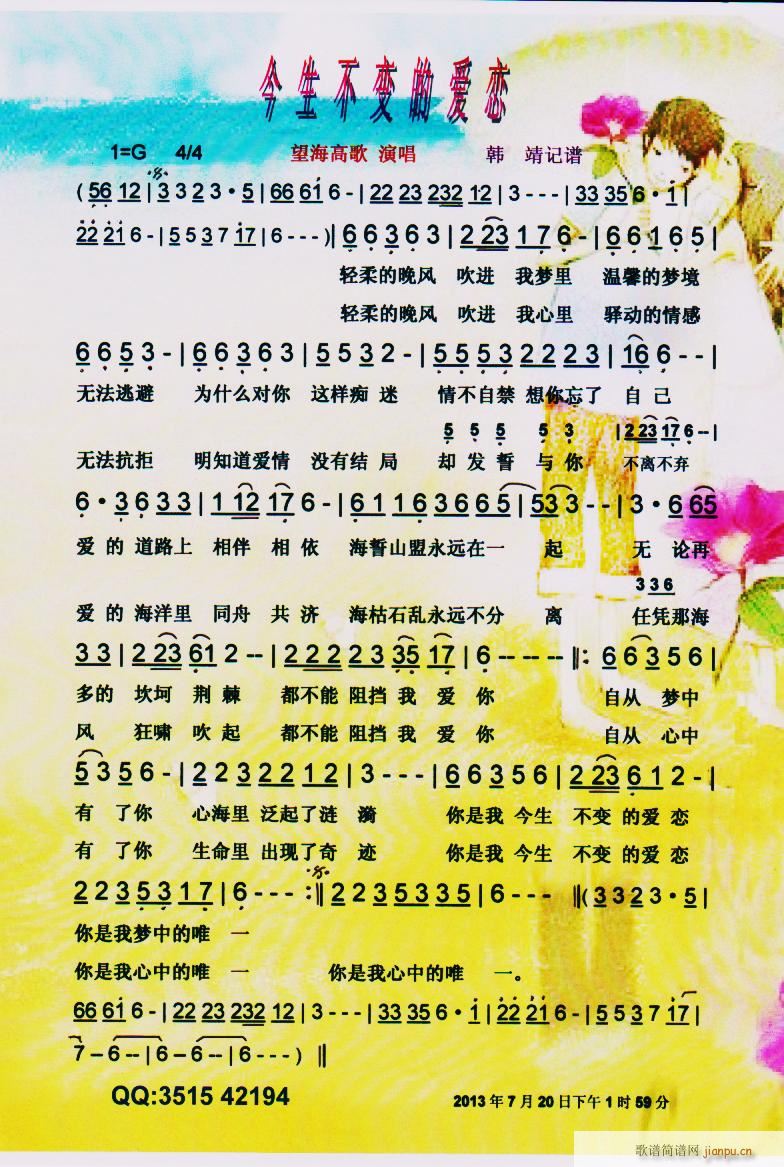 今生不变的爱恋
1=G 4/4 望海高歌 演唱 韩 靖记谱
(56 12 | 3 3 2 3·5 | 66 61 6 - | 22 23 232 12 | 3 - - - | 33 35 6·1 |
22 21 6 - | 5 5 3 7 17 | 6 - - - )| 6 6 3 6 3 | 2 23 1 7 6 - | 6 6 1 6 5 |
轻柔的晚风 吹进 我梦里 温馨的梦境
轻柔的晚风 吹进 我心里 驿动的情感
6 6 5 3 - | 6 6 3 6 3 | 5 5 3 2 - | 5 5 5 3 2 2 2 3 | 16 6 - - |
无法逃避 为什么对你 这样痴 迷 情不自禁 想你忘了 自 己
5 5 5 5 3 | 2 23 17 6 -- |
无法抗拒 明知道爱情 没有结 局 却 发 誓 与 你 不离不弃
6·3 6 3 3 | 1 12 17 6 - | 6 1 1 6 3 6 6 5 | 53 3 - - | 3·6 65
爱 的 道路上 相伴 相 依 海誓山盟永远在一 起 无 论再
3 3 6
爱 的 海洋里 同舟 共 济 海枯石乱永远不分 离 任凭那海
3 3 | 2 23 61 2 -- | 2 2 2 2 3 35 17 | 6 -- -- -- :| 6 6 3 5 6 |
多的 坎坷 荆 棘 都不能 阻挡 我 爱 你 自从 梦中
风 狂啸 吹 起 都不能 阻挡 我 爱 你 自从 心中
5 3 5 6 - | 2 2 3 2 2 1 2 | 3 - - - | 6 6 3 5 6 | 2 23 6 1 2 - |
有 了你 心海里 泛起了涟 漪 你是我 今生 不变 的爱 恋
有 了你 生命里 出现了奇 迹 你是我 今生 不变 的爱 恋
2 2 3 5 3 1 7 | 6 - - - :| 2 2 3 5 3 3 5 | 6 - - - ‖(3 3 2 3·5 |
你是我梦中的唯 一
你是我心中的唯 一 你是我心中的唯 一。
66 61 6 - | 22 23 232 12 | 3 - - - | 33 35 6·1 | 22 21 6 - | 5 5 3 7 17 |
7 – 6 -- | 6 – 6 -- | 6 - - - ) ‖
QQ:3515 42194 2013 年 7 月 20 日下午 1 时 59 分
歌谱简谱网 jianpu.cn